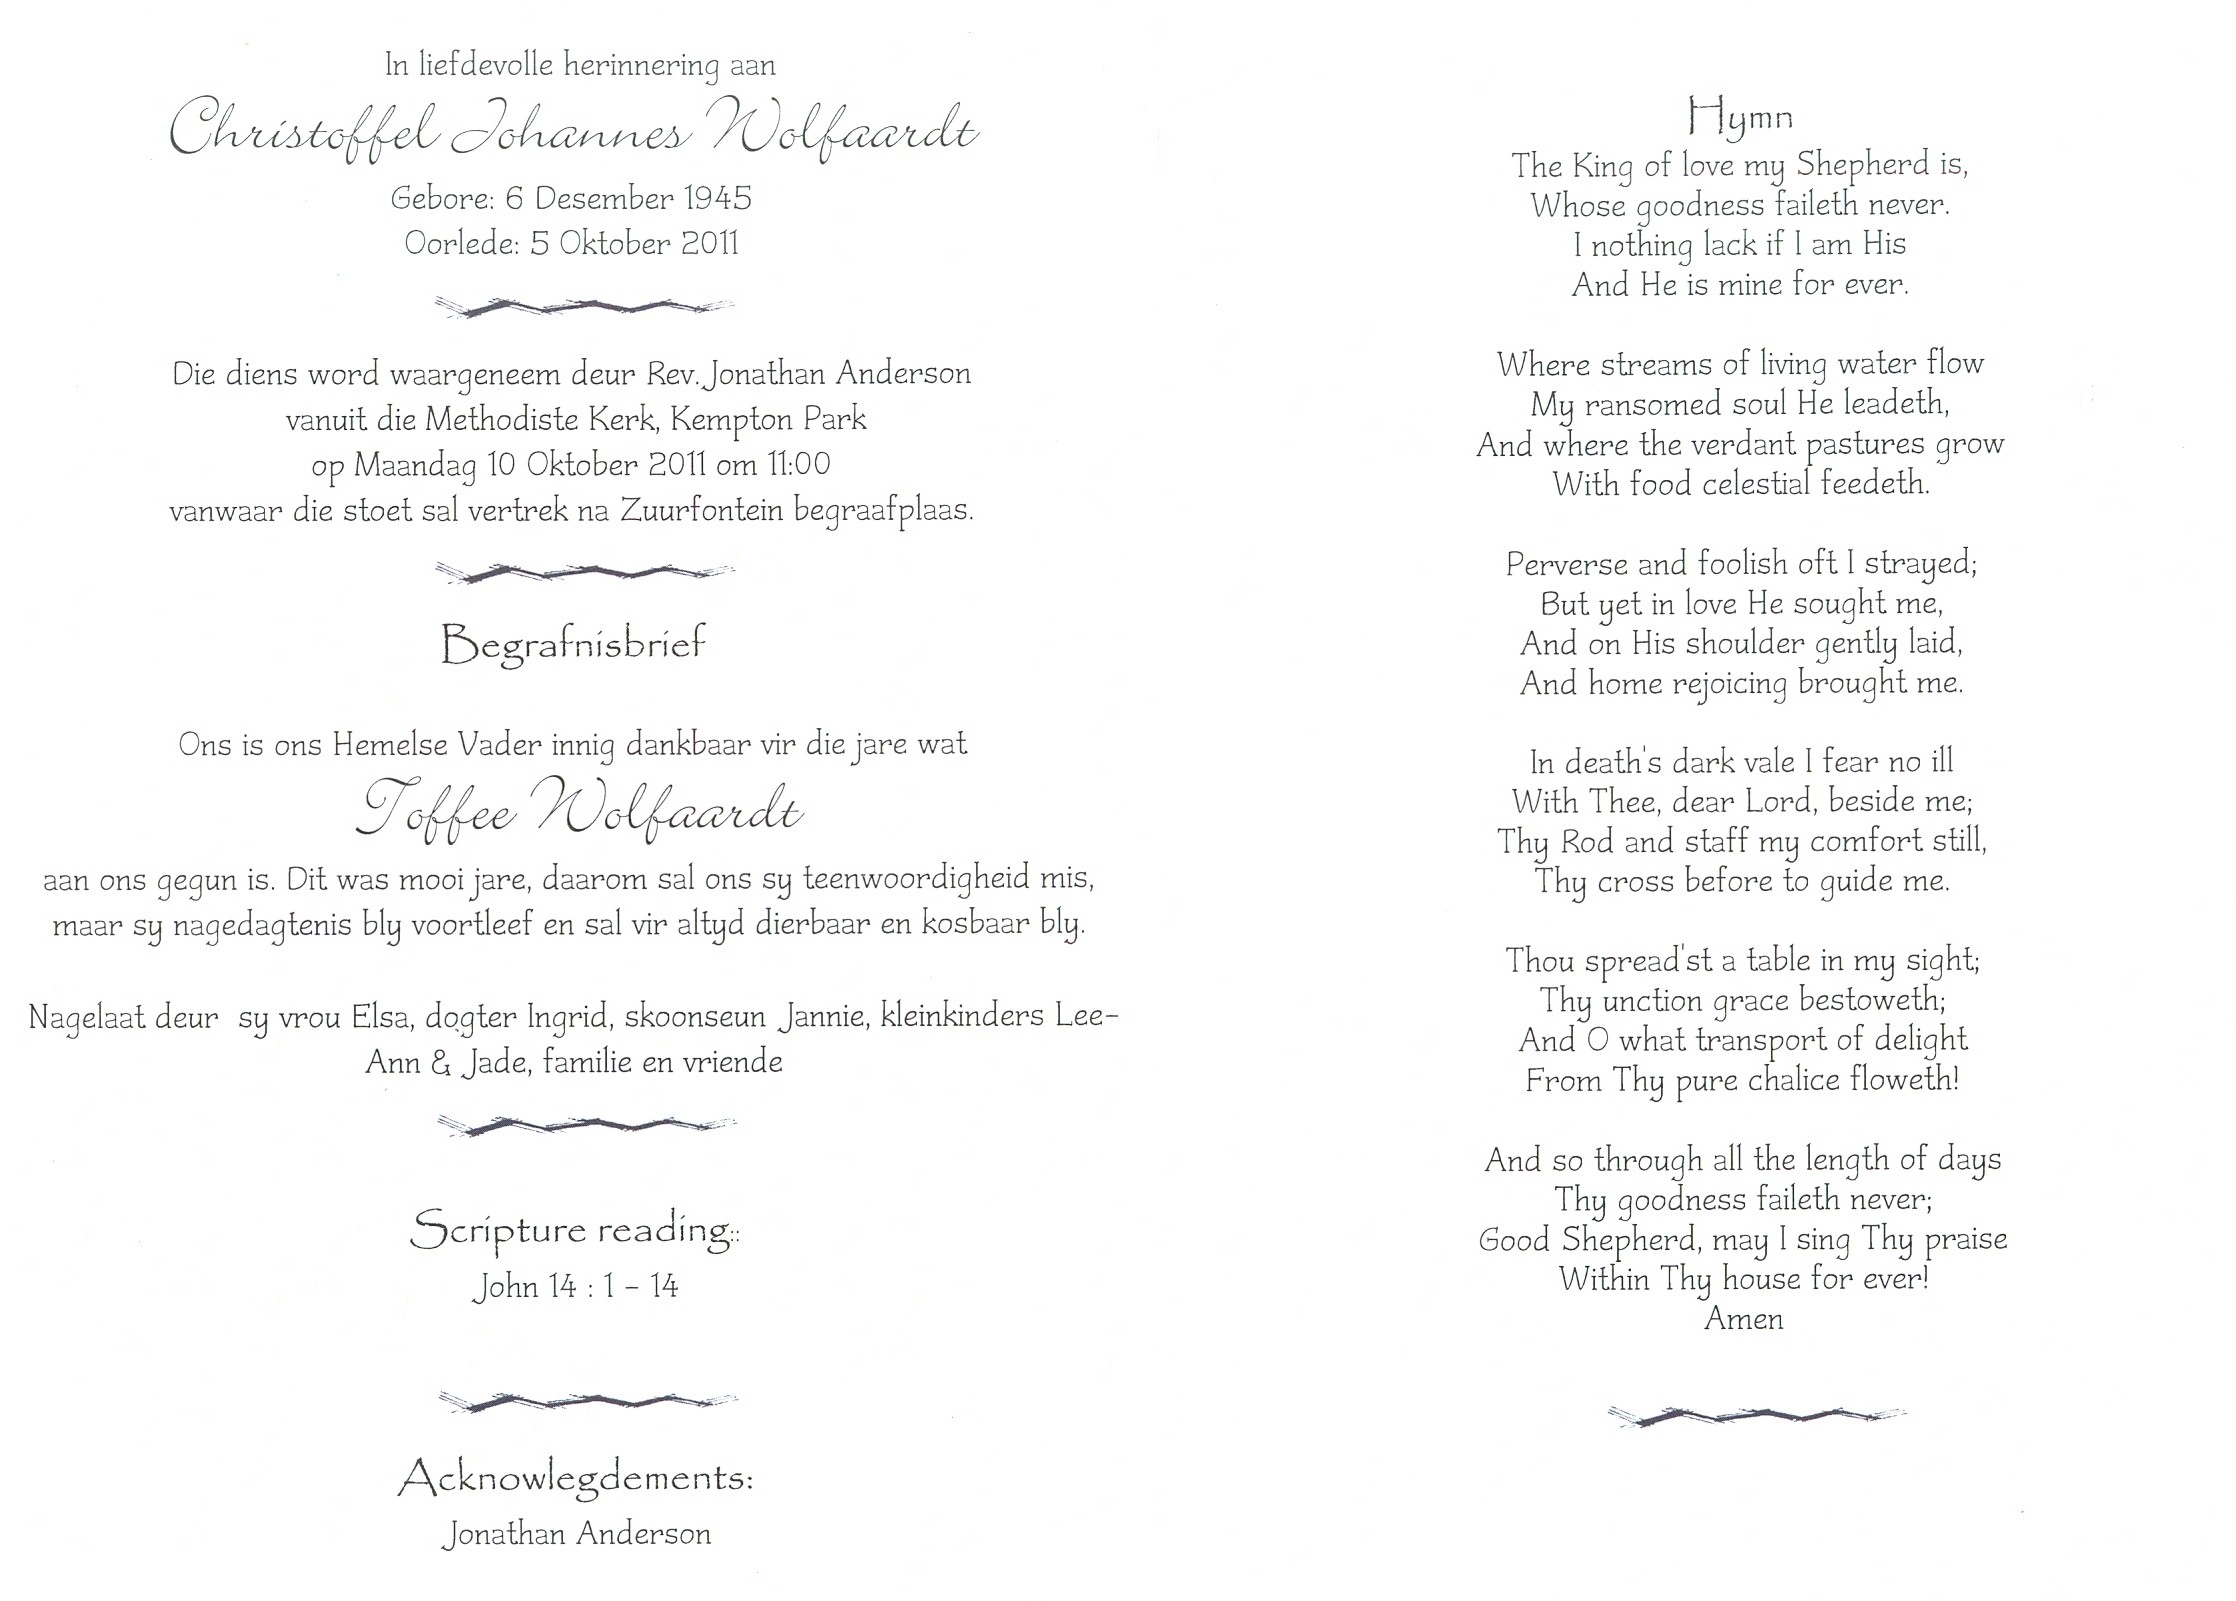 In liefdevolle herinnering aan
Christoffel Johannes Wolfaardt
Gebore: 6 Desember 1945
Oorlede: 5 Oktober 2011
Die diens word waargeneem deur Rev. Jonathan Anderson
vanuit die Methodiste Kerk, Kempton Park
op Maandag 10 Oktober 2011 om 11:00
vanwaar die stoet sal vertrek na Zuurfontein begraafplaas.
Begrafnisbrief
Ons is ons Hemelse Vader innig dankbaar vir die jare wat
Toffee Wolfaardt
aan ons gegun is. Dit was mooi jare, daarom sal ons sy teenwoordigheid mis,
maar sy nagedagtenis bly voortleef en sal vir altyd dierbaar en kosbaar bly.
Nagelaat deur  sy vrou Elsa, dogter Ingrid, skoonseun Jannie, kleinkinders Lee-
Ann & Jade, familie en vriende
Scripture reading::
John 14 : 1 - 14
Acknowlegdements:
Jonathan Anderson
Hymn
The King of love my Shepherd is,
Whose goodness faileth never.
I nothing lack if I am His
And He is mine for ever.
Where streams of living water flow
My ransomed soul He leadeth,
And where the verdant pastures grow
With food celestial feedeth.
Perverse and foolish oft I strayed;
But yet in love He sought me,
And on His shoulder gently laid,
And home rejoicing brought me.
In death's dark vale I fear no ill
With Thee, dear Lord, beside me;
Thy Rod and staff my comfort still,
Thy cross before to guide me.
Thou spread'st a table in my sight;
Thy unction grace bestoweth;
And O what transport of delight
From Thy pure chalice floweth!
And so through all the length of days
Thy goodness faileth never;
Good Shepherd, may I sing Thy praise
Within Thy house for ever!
Amen